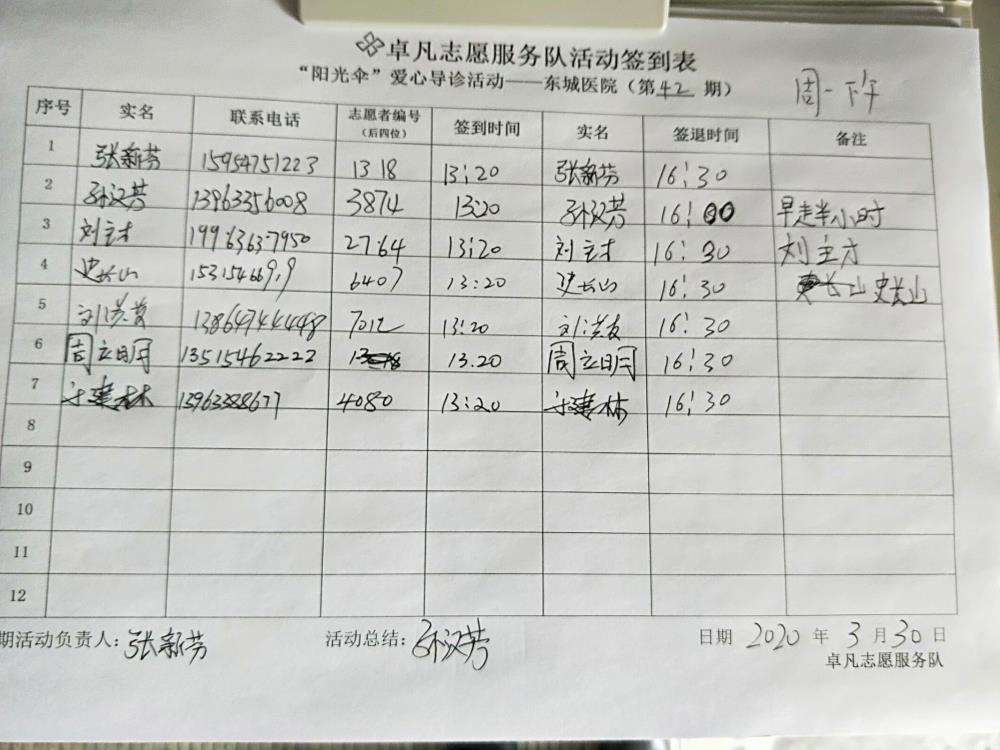 卓凡志愿服务队活动签到表
“阳光伞”爱心导诊活动——东城医院（第42期）
周一下午
序号 实名 联系电话 志愿者编号（后四位） 签到时间 实名 签退时间 备注
1 张新芳 15954751223 1318 13:20 张新芳 16:30
2 孙汉芳 13963356008 3874 13:20 孙汉芳 16:00 早走半小时
3 刘主才 19963637950 2764 13:20 刘主才 16:30 刘主才
4 史长山 6407 13:20 史长山 16:30 长山 史长山
5 刘洪 13864744448 13:20 刘洪 16:30
6 周立明 13515462222 13.20 周立明 16:30
7 建林 13963388677 4080 13:20 建林 16:30
8
9
10
11
12
期活动负责人：张新芳 活动总结：孙汉芳 日期 2020 年 3 月 30 日
卓凡志愿服务队